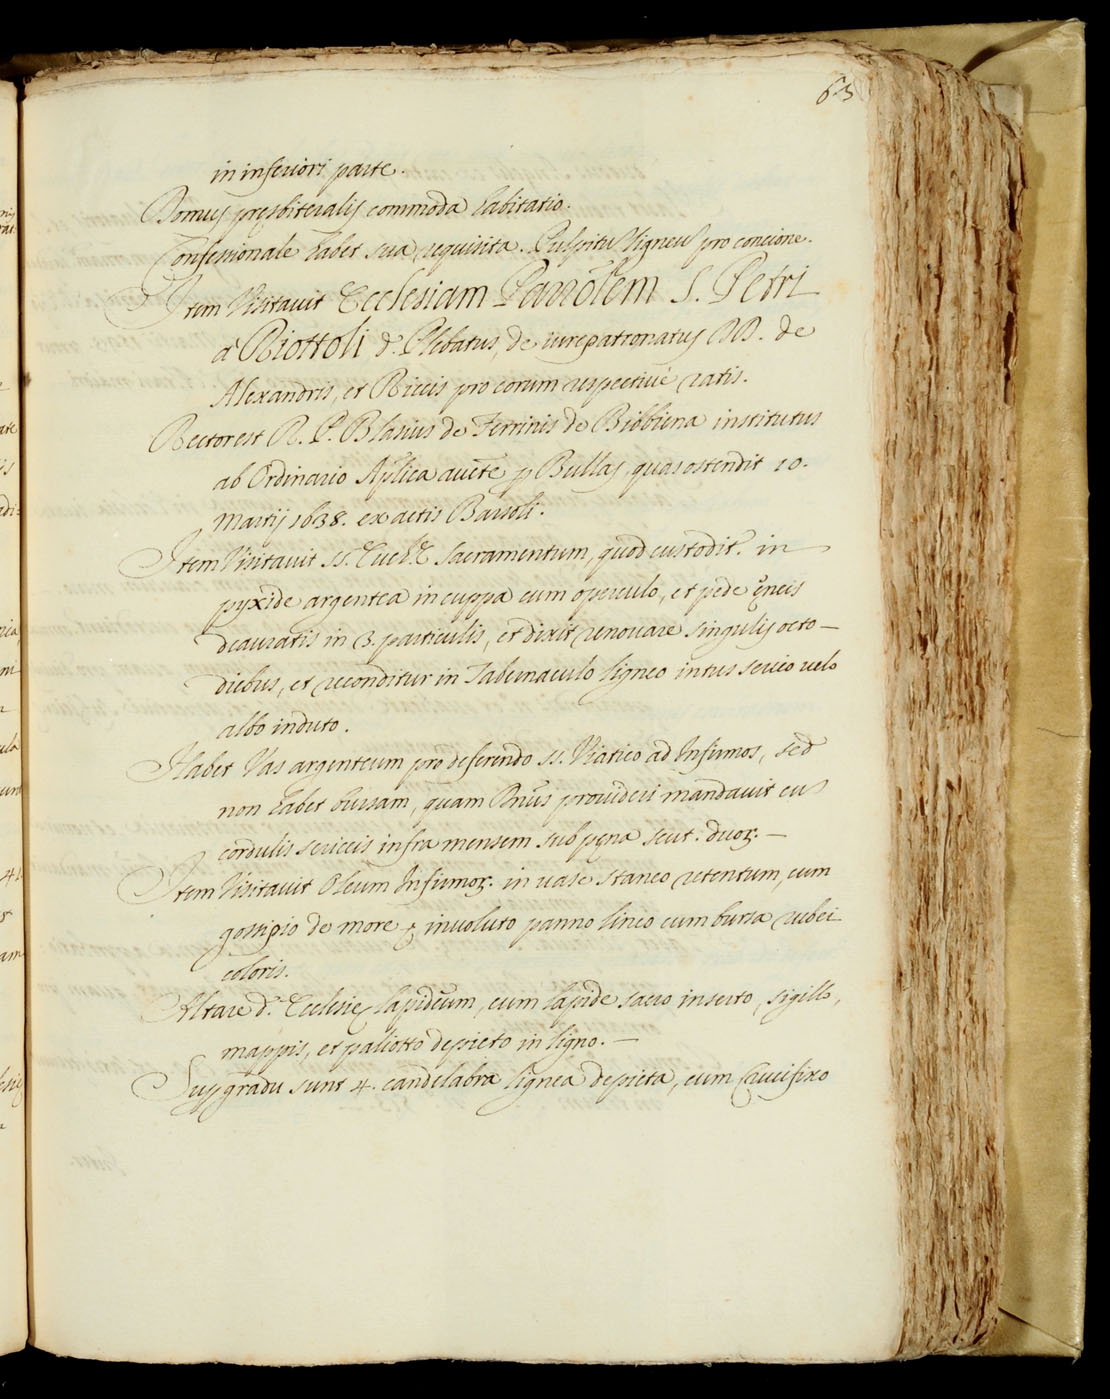 63
in inferiori parte.
Domus presbiteralis commoda habitatio.
Confessionale habet sua requisita. Pulpitũ ligneũ pro concione.
Item Visitavit Ecclesiam Parrõlem S. Petri
à Riottoli d. Plebatus, de iurepatronatus DD. de
Alexandris, et Riccis pro eorum respectivè ratis.
Rector est R. P. Blasius de Ferrinis de Bibbiena institutus
ab Ordinario Aplica aucte p Bullas, quas ostendit 10.
Martij 1638. ex actis Barsoli.
Item Visitavit SS. Euch.æ Sacramentum, quod custodit. in
pyxide argentea in cuppa cum operculo, et pede ęneis
deauratis in 3. particulis, et dixit renovare singulis octo
diebus, et reconditur in Tabernaculo ligneo intus serico velo
albo induto.
Habet Vas argenteum pro deferendo SS. Viatico ad Infirmos, sed
non habet bursam, quam Dnũs provideri mandavit cũ
cordulis sericeis infra mensem sub pęna scut. duoꝝ.
Item Visitavit Oleum Infirmoꝝ. in vase staneo retentum, cum
gossipio de more & involuto panno lineo cum bursa rubei
coloris.
Altare d. Ecclesię lapideum, cum lapide sacro inserto, sigillo,
mappis, et paliotto depicto in ligno.
Sup gradu sunt 4. candelabra lignea depicta, cum Crucifixo